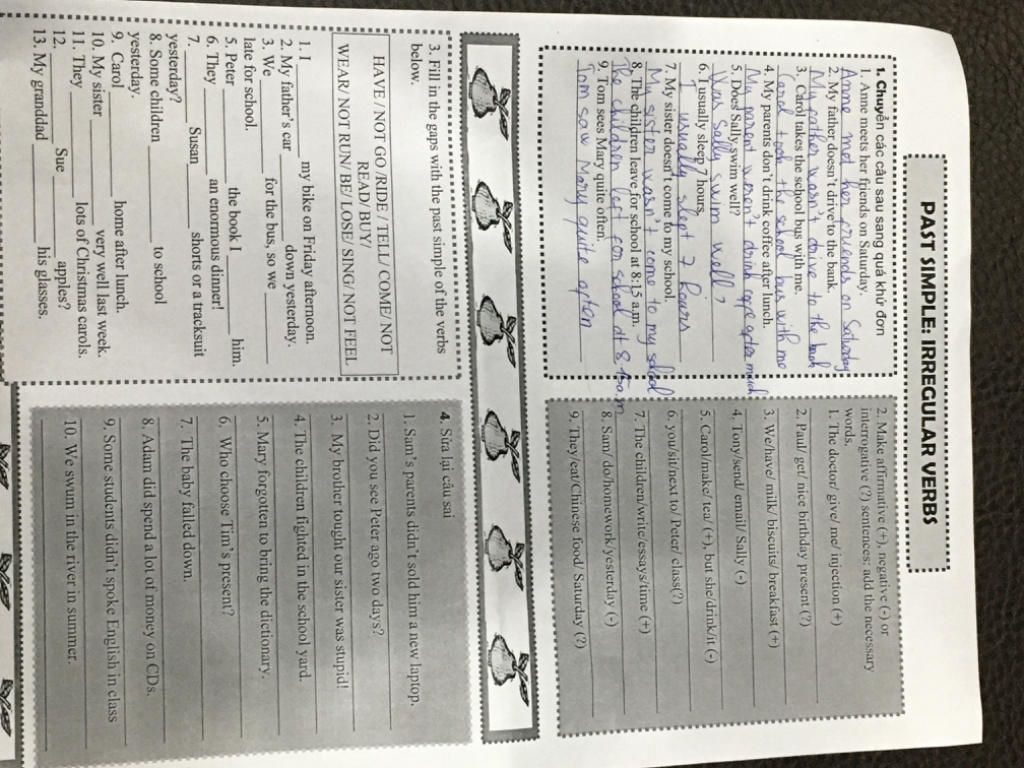 PAST SIMPLE: IRREGULAR VERBS
1. Chuyển các câu sau sang quá khứ đơn
1. Anne meets her friends on Saturday.
Anne met her friends on Saturday
2. My father doesn't drive to the bank.
My father wasn't drive to the bank
3. Carol takes the school bus with me.
Carol took the school bus with me
4. My parents don't drink coffee after lunch.
My parent weren't drink
5. Does Sally swim well?
Was Sally swim well?
6. I usually sleep 7 hours.
I usually slept 7 hours
7. My sister doesn't come to my school.
My sister wasn't come to my school
8. The children leave for school at 8:15 a.m.
The children left for school at 8:15a.m
9. Tom sees Mary quite often.
Tom saw Mary quite often
2. Make affirmative (+), negative (-) or
interrogative (?) sentences: add the necessary
words.
1. The doctor/ give/ me/ injection (+)
2. Paul/ get/ nice birthday present (?)
3. We/have/ milk/ biscuits/ breakfast (+)
4. Tony/send/ email/ Sally (-)
5. Carol/make/ tea/ (+), but she/drink/it (-)
6. you/sit/next to/ Peter/ class(?)
7. The children/write/essays/time (+)
8. Sam/ do/homework/yesterday (-)
9. They/eat/Chinese food/ Saturday (?)
3. Fill in the gaps with the past simple of the verbs
below.
HAVE / NOT GO /RIDE / TELL/ COME/ NOT
READ/ BUY/
WEAR/ NOT RUN/ BE/ LOSE/ SING/ NOT FEEL
1. I ________ my bike on Friday afternoon.
2. My father's car ________ down yesterday.
3. We ________ for the bus, so we ________
late for school.
5. Peter ________ the book I ________ him.
6. They ________ an enormous dinner!
7. ________ Susan ________ shorts or a tracksuit
yesterday?
8. Some children ________ to school
yesterday.
9. Carol ________ home after lunch.
10. My sister ________ very well last week.
11. They ________ lots of Christmas carols.
12. ________ Sue ________ apples?
13. My granddad ________ his glasses.
4. Sửa lại câu sai
1. Sam's parents didn't sold him a new laptop.
2. Did you see Peter ago two days?
3. My brother tought our sister was stupid!
4. The children fighted in the school yard.
5. Mary forgotten to bring the dictionary.
6. Who choose Tim's present?
7. The baby falled down.
8. Adam did spend a lot of money on CDs.
9. Some students didn't spoke English in class
10. We swum in the river in summer.